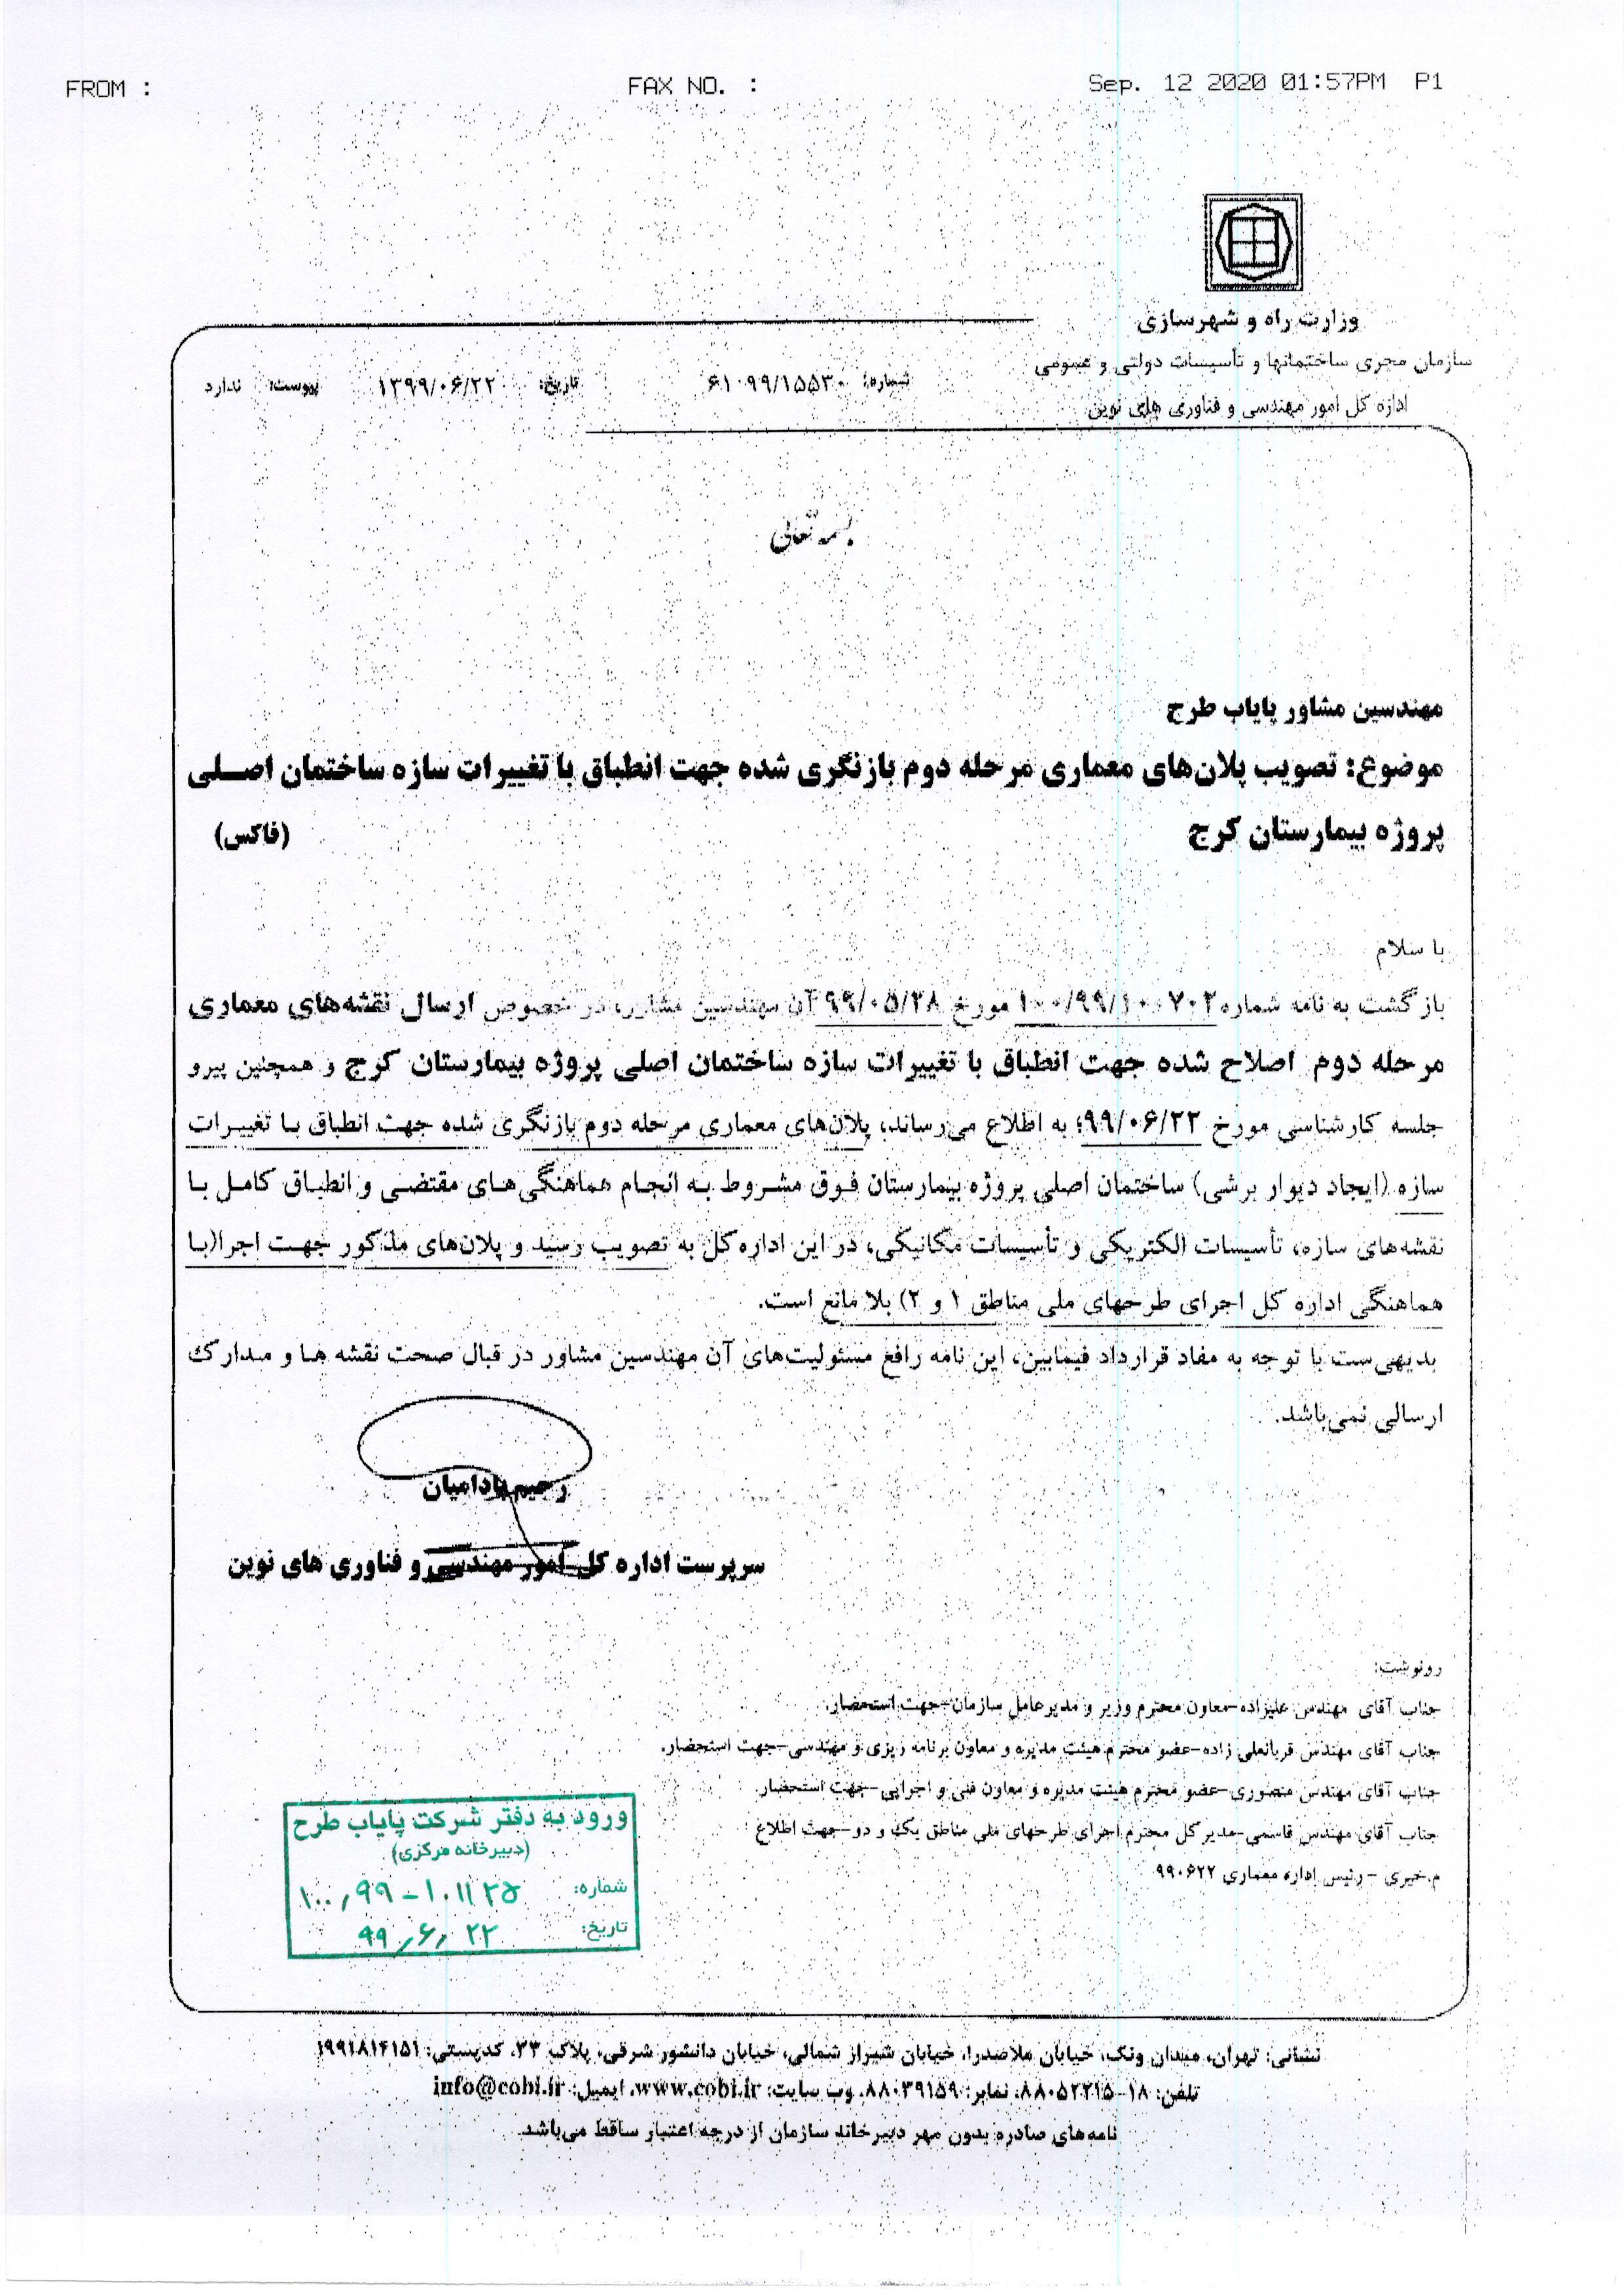 FROM :
FAX NO. :
Sep. 12 2020 01:57PM P1
وزارت راه و شهرسازی
سازمان مجری ساختمانها و تأسیسات دولتی و عمومی
اداره کل امور مهندسی و فناوری های نوین
شماره: ۶۱۰۹۹/۱۵۵۳۰
تاریخ: ۱۳۹۹/۰۶/۲۲
پیوست: ندارد
بسمه تعالی
مهندسین مشاور پایاب طرح
موضوع: تصویب پلان‌های معماری مرحله دوم بازنگری شده جهت انطباق با تغییرات سازه ساختمان اصلی
پروژه بیمارستان کرج (فاکس)
با سلام
بازگشت به نامه شماره ۱۰۰/۹۹/۱۰۰۷۰۲ مورخ ۹۹/۰۵/۲۸ آن مهندسین مشاور، در خصوص ارسال نقشه‌های معماری
مرحله دوم اصلاح شده جهت انطباق با تغییرات سازه ساختمان اصلی پروژه بیمارستان کرج و همچنین پیرو
جلسه کارشناسی مورخ ۹۹/۰۶/۲۲؛ به اطلاع می‌رساند، پلان‌های معماری مرحله دوم بازنگری شده جهت انطباق با تغییرات
سازه (ایجاد دیوار برشی) ساختمان اصلی پروژه بیمارستان فوق مشروط به انجام هماهنگی‌های مقتضی و انطباق کامل با
نقشه‌های سازه، تأسیسات الکتریکی و تأسیسات مکانیکی، در این اداره‌کل به تصویب رسید و پلان‌های مذکور جهت اجرا(با
هماهنگی اداره کل اجرای طرحهای ملی مناطق ۱ و ۲) بلا مانع است.
بدیهی‌ست با توجه به مفاد قرارداد فیمابین، این نامه رافع مسئولیت‌های آن مهندسین مشاور در قبال صحت نقشه ها و مدارک
ارسالی نمی‌باشد.
رحیم بادامیان
سرپرست اداره کل امور مهندسی و فناوری های نوین
رونوشت:
جناب آقای مهندس علیزاده-معاون محترم وزیر و مدیرعامل سازمان-جهت استحضار.
جناب آقای مهندس قربانعلی زاده-عضو محترم هیئت مدیره و معاون برنامه ریزی و مهندسی-جهت استحضار.
جناب آقای مهندس منصوری-عضو محترم هیئت مدیره و معاون فنی و اجرایی-جهت استحضار.
جناب آقای مهندس قاسمی-مدیر کل محترم اجرای طرحهای ملی مناطق یک و دو-جهت اطلاع
م.خیری - رئیس اداره معماری ۹۹۰۶۲۲
ورود به دفتر شرکت پایاب طرح
(دبیرخانه مرکزی)
شماره: ۱۰۰٫۹۹-۱۰۱۱۲۵
تاریخ: ۹۹٫۶٫۲۲
نشانی: تهران، میدان ونک، خیابان ملاصدرا، خیابان شیراز شمالی، خیابان دانشور شرقی، پلاک ۲۳، کدپستی: ۱۹۹۱۸۱۴۱۵۱
تلفن: ۱۸-۸۸۰۵۲۲۱۵، نمابر: ۸۸۰۳۹۱۵۹، وب سایت: www.cobi.ir، ایمیل: info@cobi.ir
نامه‌های صادره بدون مهر دبیرخانه سازمان از درجه اعتبار ساقط می‌باشد.